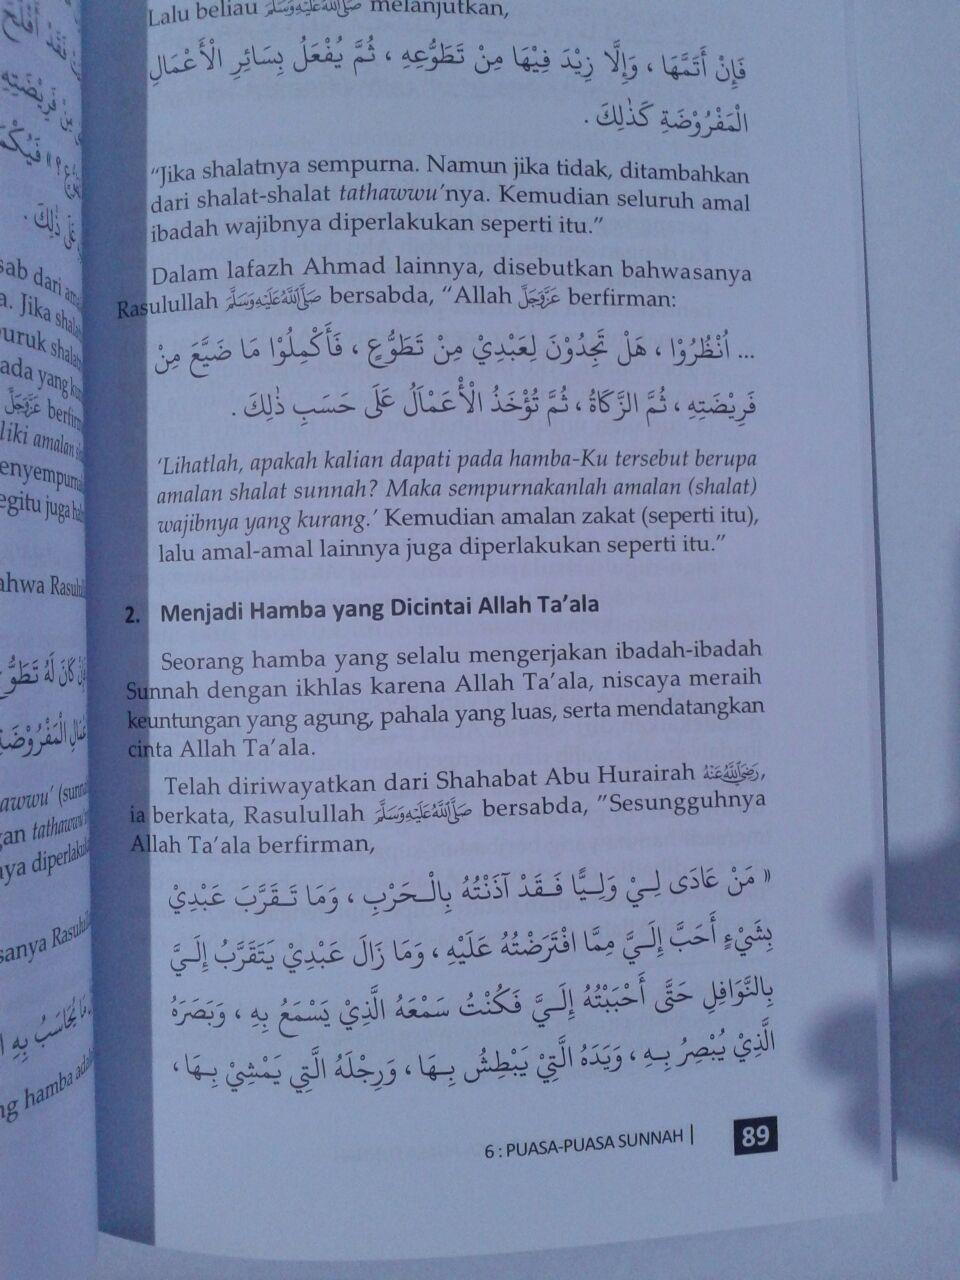 Lalu beliau ﷺ melanjutkan,
فَإِنْ أَتَمَّهَا ، وَإِلَّا زِيْدَ فِيْهَا مِنْ تَطَوُّعِهِ ، ثُمَّ يُفْعَلُ بِسَائِرِ الْأَعْمَالِ
الْمَفْرُوْضَةِ كَذٰلِكَ .
“Jika shalatnya sempurna. Namun jika tidak, ditambahkan
dari shalat-shalat tathawwu’nya. Kemudian seluruh amal
ibadah wajibnya diperlakukan seperti itu.”
Dalam lafazh Ahmad lainnya, disebutkan bahwasanya
Rasulullah ﷺ bersabda, “Allah عَزَّوَجَلَّ berfirman:
... اُنْظُرُوْا ، هَلْ تَجِدُوْنَ لِعَبْدِيْ مِنْ تَطَوُّعٍ ، فَأَكْمِلُوْا مَا ضَيَّعَ مِنْ
فَرِيْضَتِهِ ، ثُمَّ الزَّكَاةُ ، ثُمَّ تُؤْخَذُ الْأَعْمَالُ عَلَى حَسَبِ ذٰلِكَ .
‘Lihatlah, apakah kalian dapati pada hamba-Ku tersebut berupa
amalan shalat sunnah? Maka sempurnakanlah amalan (shalat)
wajibnya yang kurang.’ Kemudian amalan zakat (seperti itu),
lalu amal-amal lainnya juga diperlakukan seperti itu.”
2. Menjadi Hamba yang Dicintai Allah Ta’ala
Seorang hamba yang selalu mengerjakan ibadah-ibadah
Sunnah dengan ikhlas karena Allah Ta’ala, niscaya meraih
keuntungan yang agung, pahala yang luas, serta mendatangkan
cinta Allah Ta’ala.
Telah diriwayatkan dari Shahabat Abu Hurairah رَضِيَ اللَّهُ عَنْهُ,
ia berkata, Rasulullah ﷺ bersabda, ”Sesungguhnya
Allah Ta’ala berfirman,
« مَنْ عَادَى لِيْ وَلِيًّا فَقَدْ آذَنْتُهُ بِالْحَرْبِ ، وَمَا تَقَرَّبَ عَبْدِيْ
بِشَيْءٍ أَحَبَّ إِلَيَّ مِمَّا افْتَرَضْتُهُ عَلَيْهِ ، وَمَا زَالَ عَبْدِيْ يَتَقَرَّبُ إِلَيَّ
بِالنَّوَافِلِ حَتَّى أَحْبَبْتُهُ إِلَيَّ فَكُنْتُ سَمْعَهُ الَّذِيْ يَسْمَعُ بِهِ ، وَبَصَرَهُ
الَّذِيْ يُبْصِرُ بِهِ ، وَيَدَهُ الَّتِيْ يَبْطِشُ بِهَا ، وَرِجْلَهُ الَّتِي يَمْشِيْ بِهَا ،
6 : PUASA-PUASA SUNNAH | 89